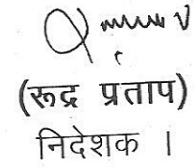 (रूद्र प्रताप)
निदेशक ।